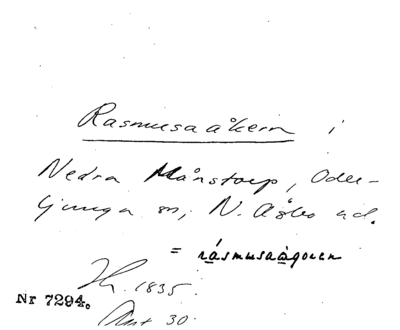 Rasmusaåkern i
Nedra Månstorp, Oder-
ljunga sn, N. Åsbo hd.
= rasmusaågoren
1835.
Nr 7294.
30.